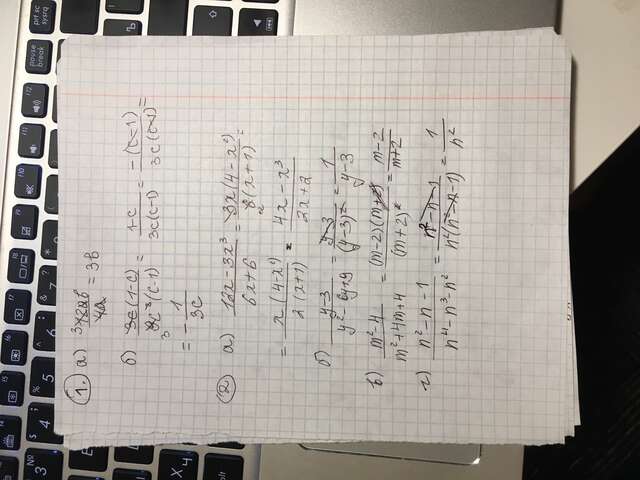 1. а) 12ab/4a = 3b
б) 3c(1-c)/9c³(c-1) = 1-c/3c(c-1) = -(c-1)/3c(c-1) =
= - 1/3c
2. а) 12x-3x³/6x+6 = 3x(4-x²)/6(x+1) =
= x(4-x²)/2(x+1) = 4x-x³/2x+2
б) y-3/y²-6y+9 = y-3/(y-3)² = 1/y-3
в) m²-4/m²+4m+4 = (m-2)(m+2)/(m+2)² = m-2/m+2
г) n²-n-1/n⁴-n³-n² = n²-n-1/n²(n²-n-1) = 1/n²